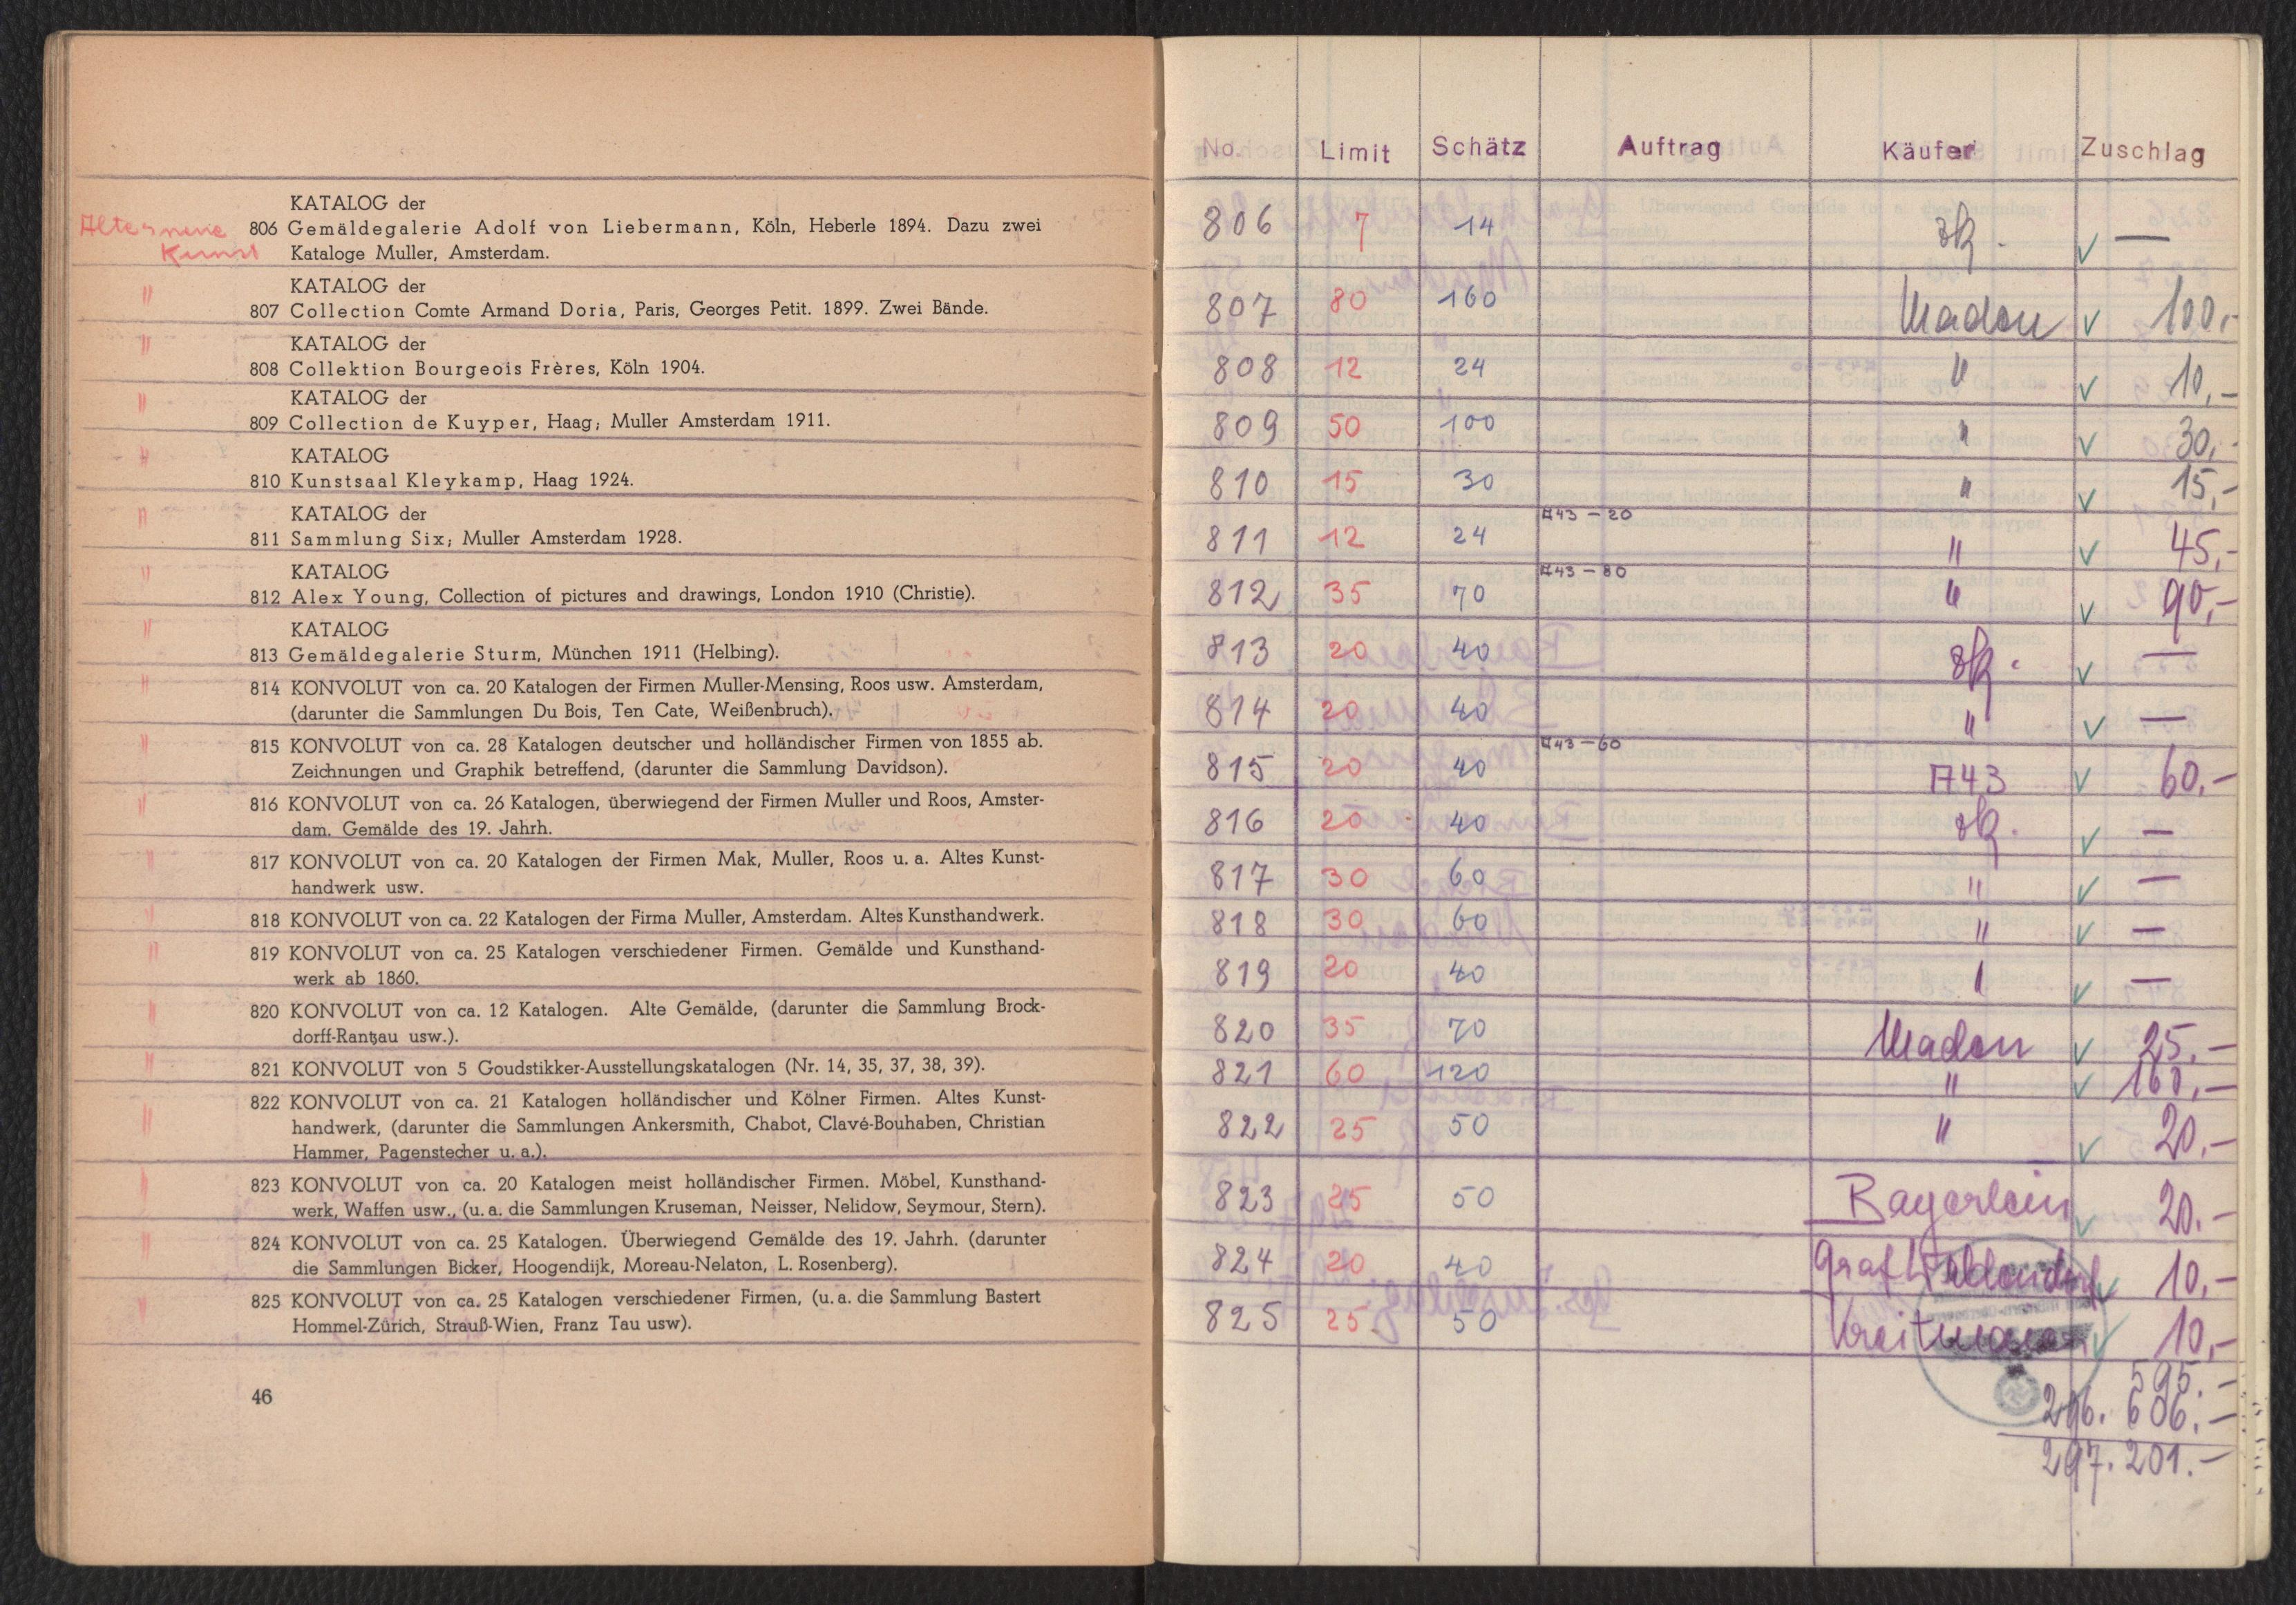 KATALOG der
806 Gemäldegalerie Adolf von Liebermann, Köln, Heberle 1894. Dazu zwei
Kataloge Muller, Amsterdam.
Kunst
KATALOG der
" 807 Collection Comte Armand Doria, Paris, Georges Petit. 1899. Zwei Bände.
KATALOG der
" 808 Collektion Bourgeois Frères, Köln 1904.
KATALOG der
" 809 Collection de Kuyper, Haag; Muller Amsterdam 1911.
KATALOG
" 810 Kunstsaal Kleykamp, Haag 1924.
KATALOG der
" 811 Sammlung Six; Muller Amsterdam 1928.
KATALOG
" 812 Alex Young, Collection of pictures and drawings, London 1910 (Christie).
KATALOG
" 813 Gemäldegalerie Sturm, München 1911 (Helbing).
" 814 KONVOLUT von ca. 20 Katalogen der Firmen Muller-Mensing, Roos usw. Amsterdam,
(darunter die Sammlungen Du Bois, Ten Cate, Weißenbruch).
" 815 KONVOLUT von ca. 28 Katalogen deutscher und holländischer Firmen von 1855 ab.
Zeichnungen und Graphik betreffend, (darunter die Sammlung Davidson).
" 816 KONVOLUT von ca. 26 Katalogen, überwiegend der Firmen Muller und Roos, Amster-
dam. Gemälde des 19. Jahrh.
" 817 KONVOLUT von ca. 20 Katalogen der Firmen Mak, Muller, Roos u. a. Altes Kunst-
handwerk usw.
" 818 KONVOLUT von ca. 22 Katalogen der Firma Muller, Amsterdam. Altes Kunsthandwerk.
" 819 KONVOLUT von ca. 25 Katalogen verschiedener Firmen. Gemälde und Kunsthand-
werk ab 1860.
" 820 KONVOLUT von ca. 12 Katalogen. Alte Gemälde, (darunter die Sammlung Brock-
dorff-Rantzau usw.).
" 821 KONVOLUT von 5 Goudstikker-Ausstellungskatalogen (Nr. 14, 35, 37, 38, 39).
" 822 KONVOLUT von ca. 21 Katalogen holländischer und Kölner Firmen. Altes Kunst-
handwerk, (darunter die Sammlungen Ankersmith, Chabot, Clavé-Bouhaben, Christian
Hammer, Pagenstecher u. a.).
" 823 KONVOLUT von ca. 20 Katalogen meist holländischer Firmen. Möbel, Kunsthand-
werk, Waffen usw., (u. a. die Sammlungen Kruseman, Neisser, Nelidow, Seymour, Stern).
" 824 KONVOLUT von ca. 25 Katalogen. Überwiegend Gemälde des 19. Jahrh. (darunter
die Sammlungen Bicker, Hoogendijk, Moreau-Nelaton, L. Rosenberg).
" 825 KONVOLUT von ca. 25 Katalogen verschiedener Firmen, (u. a. die Sammlung Bastert
Hommel-Zürich, Strauß-Wien, Franz Tau usw).
46
No. Limit Schätz Auftrag Käufer Zuschlag
806 7 14 —
807 80 160 Madon 100,-
808 12 24 " 10,-
809 50 100 " 30,-
810 15 30 " 15,-
811 12 24 A43 - 20 " 45,-
812 35 70 A43 - 80 " 90,-
813 20 40 —
814 20 40 " —
815 20 40 A43 - 60 A43 60,-
816 20 40 —
817 30 60 " —
818 30 60 " —
819 20 40 " —
820 35 70 Madon 25,-
821 60 120 " 160,-
822 25 50 " 20,-
823 25 50 Bayerlein 20,-
824 20 40 Graf 10,-
825 25 50 10,-
595.-
296.606.-
297.201.-